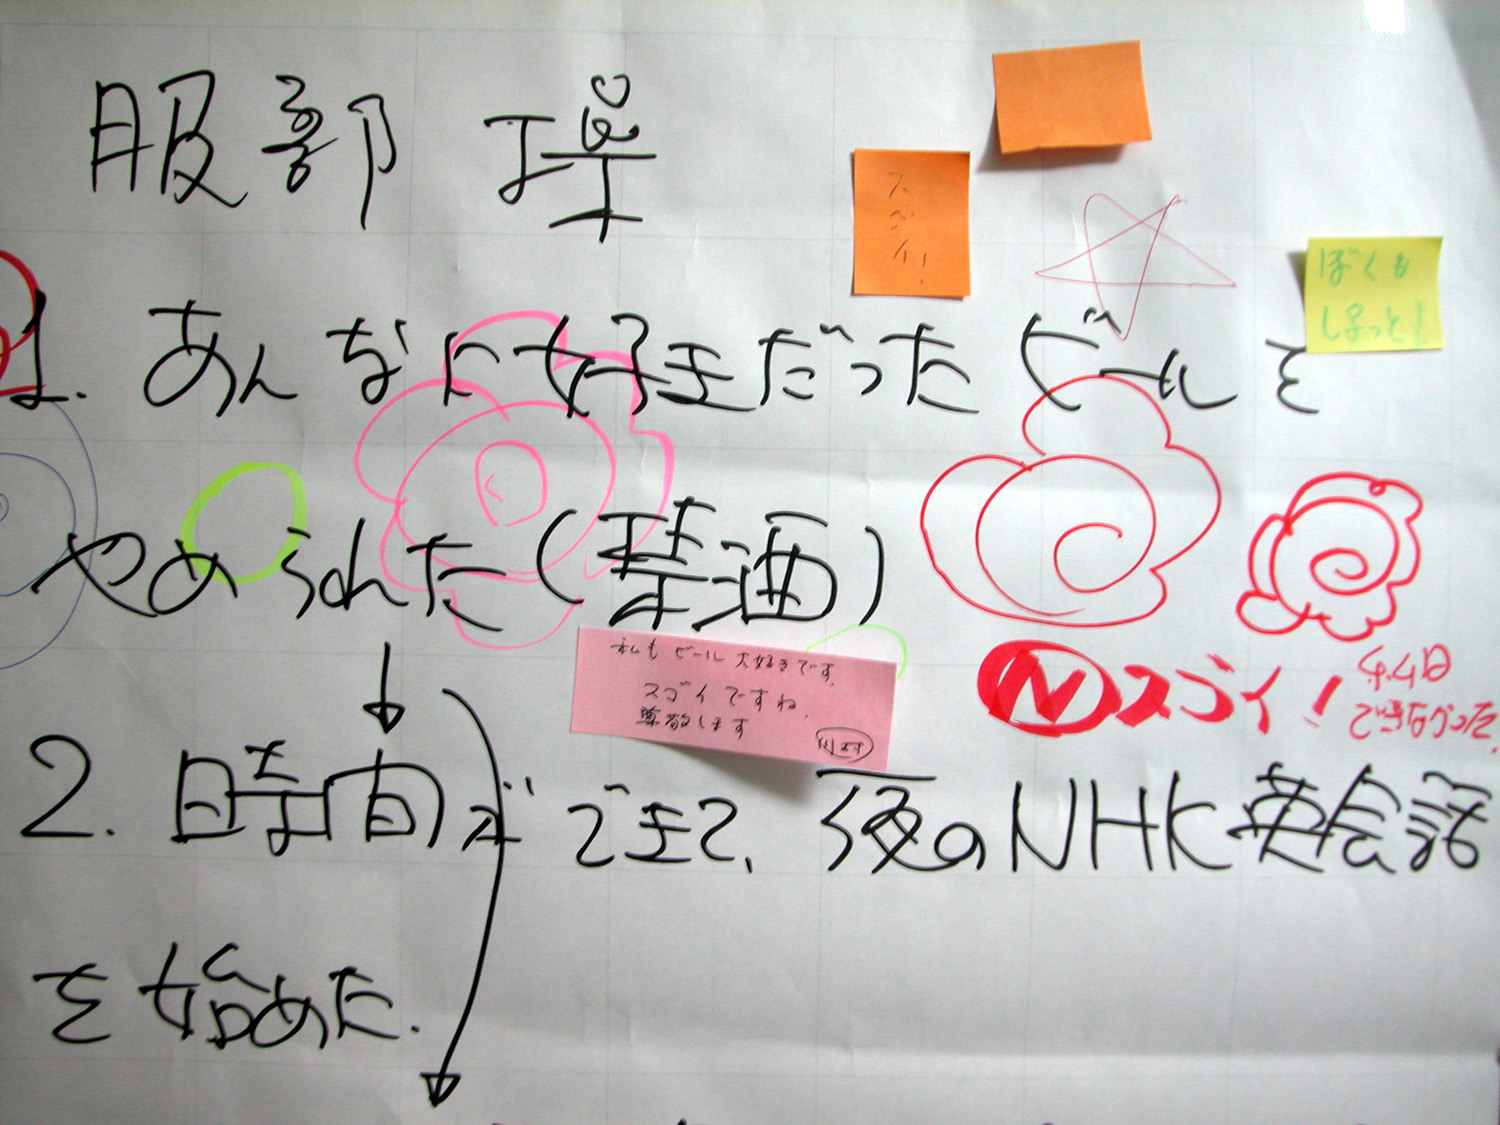 服部
スゴイ!
ぼくも
しまっと!
1. あんなに好きだったビールを
やめられた(禁酒)
私もビール大好きです。
スゴイですね。
尊敬します
川村
Nスゴイ!
4.4日
できなかった。
2. 時間ができて、夜のNHK英会話
を始めた.